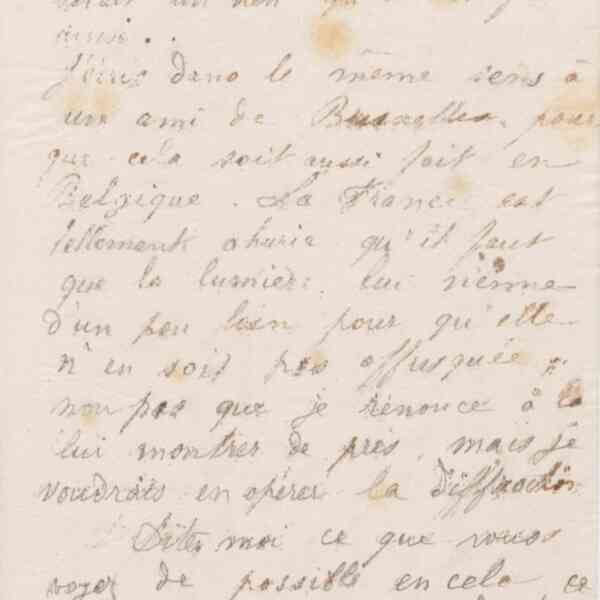 ainsi..
J'écris dans le même sens à
un ami de Bruxelles, pour
que cela soit aussi fait en
Belgique. La France est
tellement ahurie qu'il faut
que la lumière lui vienne
d'un peu loin pour qu'elle
n'en soit pas offusquée;
non pas que je renonce à la
lui montrer de près, mais je
voudrais en opérer la diffraction
Dites moi ce que vous
voyez de possible en cela, ce